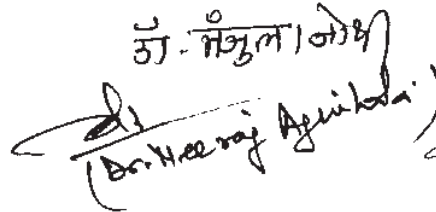 डॉ. मंजुला जोशी
(Dr. Neeraj Agnihotri)